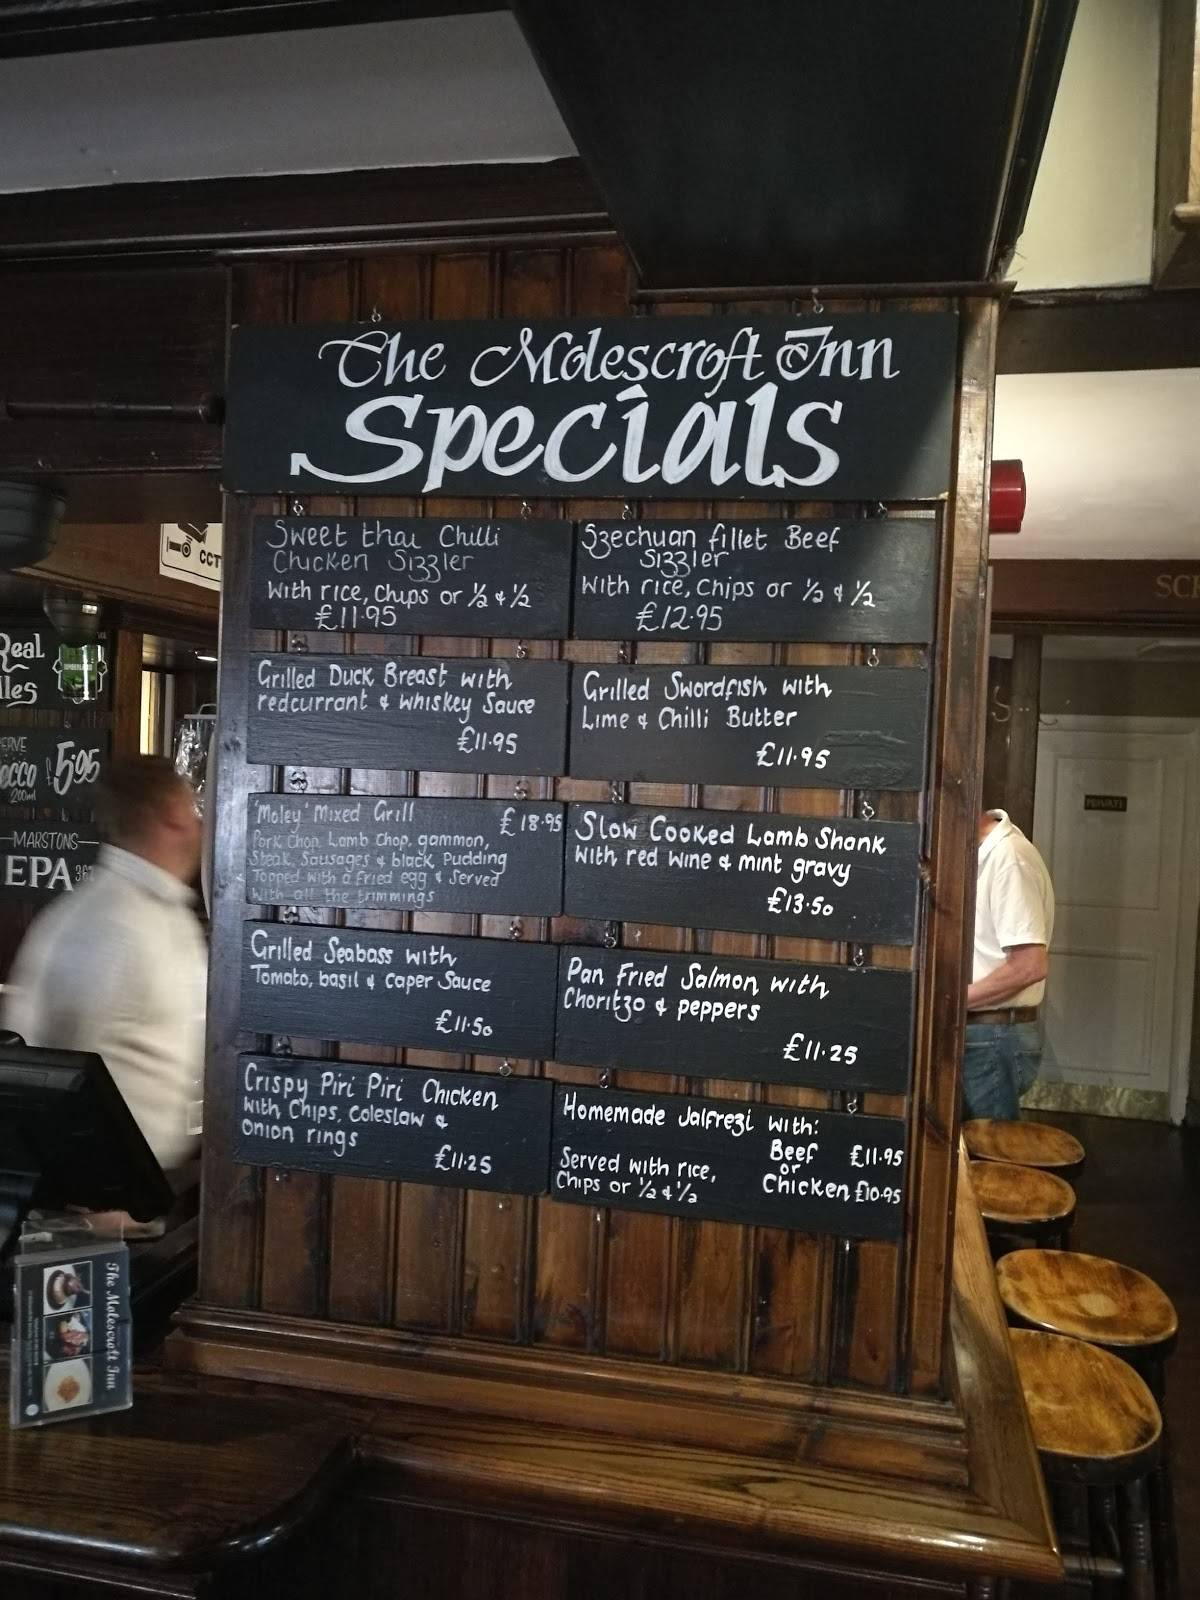 The Molescroft Inn
Specials
Sweet thai Chilli
Chicken Sizzler
With rice, chips or ½ & ½
£11.95
Szechuan fillet Beef
Sizzler
With rice, chips or ½ & ½
£12.95
Grilled Duck Breast with
redcurrant & whiskey Sauce
£11.95
Grilled Swordfish with
Lime & Chilli Butter
£11.95
'Moley' Mixed Grill £18.95
Pork Chop, Lamb Chop, gammon,
Steak, Sausages & black Pudding
Topped with a fried egg & Served
with all the trimmings
Slow Cooked Lamb Shank
with red wine & mint gravy
£13.50
Grilled Seabass with
Tomato, basil & caper Sauce
£11.50
Pan Fried Salmon with
Choritzo & peppers
£11.25
Crispy Piri Piri Chicken
with Chips, coleslaw &
onion rings
£11.25
Homemade Jalfrezi with:
Beef £11.95
or
Chicken £10.95
Served with rice,
Chips or ½ & ½
CCT
Real
lles
ERVE
ecco £5.95
200ml
MARSTONS
EPA
The Molescroft Inn
PRIVATE